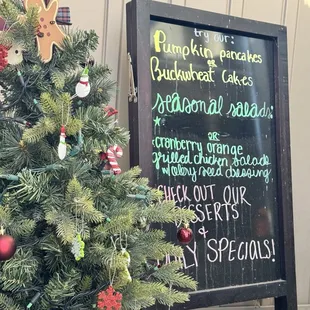 try our:
Pumpkin pancakes
or
Buckwheat Cakes
seasonal salads:
OR
cranberry orange
grilled chicken salads
w/ poppy seed dressing
CHECK OUT OUR
DESSERTS
&
SPECIALS!